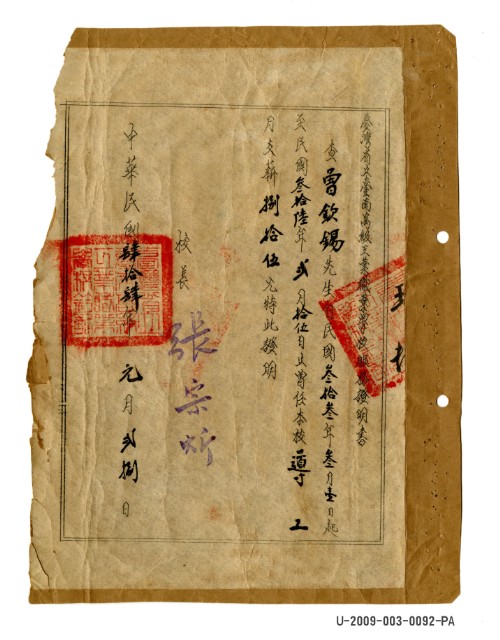 臺灣省立臺南高級工業職業學校服務證明書
查曾欽錫先生自民國叁拾叁年叁月壹日起
至民國叁拾陸年貳月拾伍日止曾任本校導工
月支薪捌拾伍元特此證明
校長
張宗炘
中華民國肆拾肆年元月貳捌日
U-2009-003-0092-PA